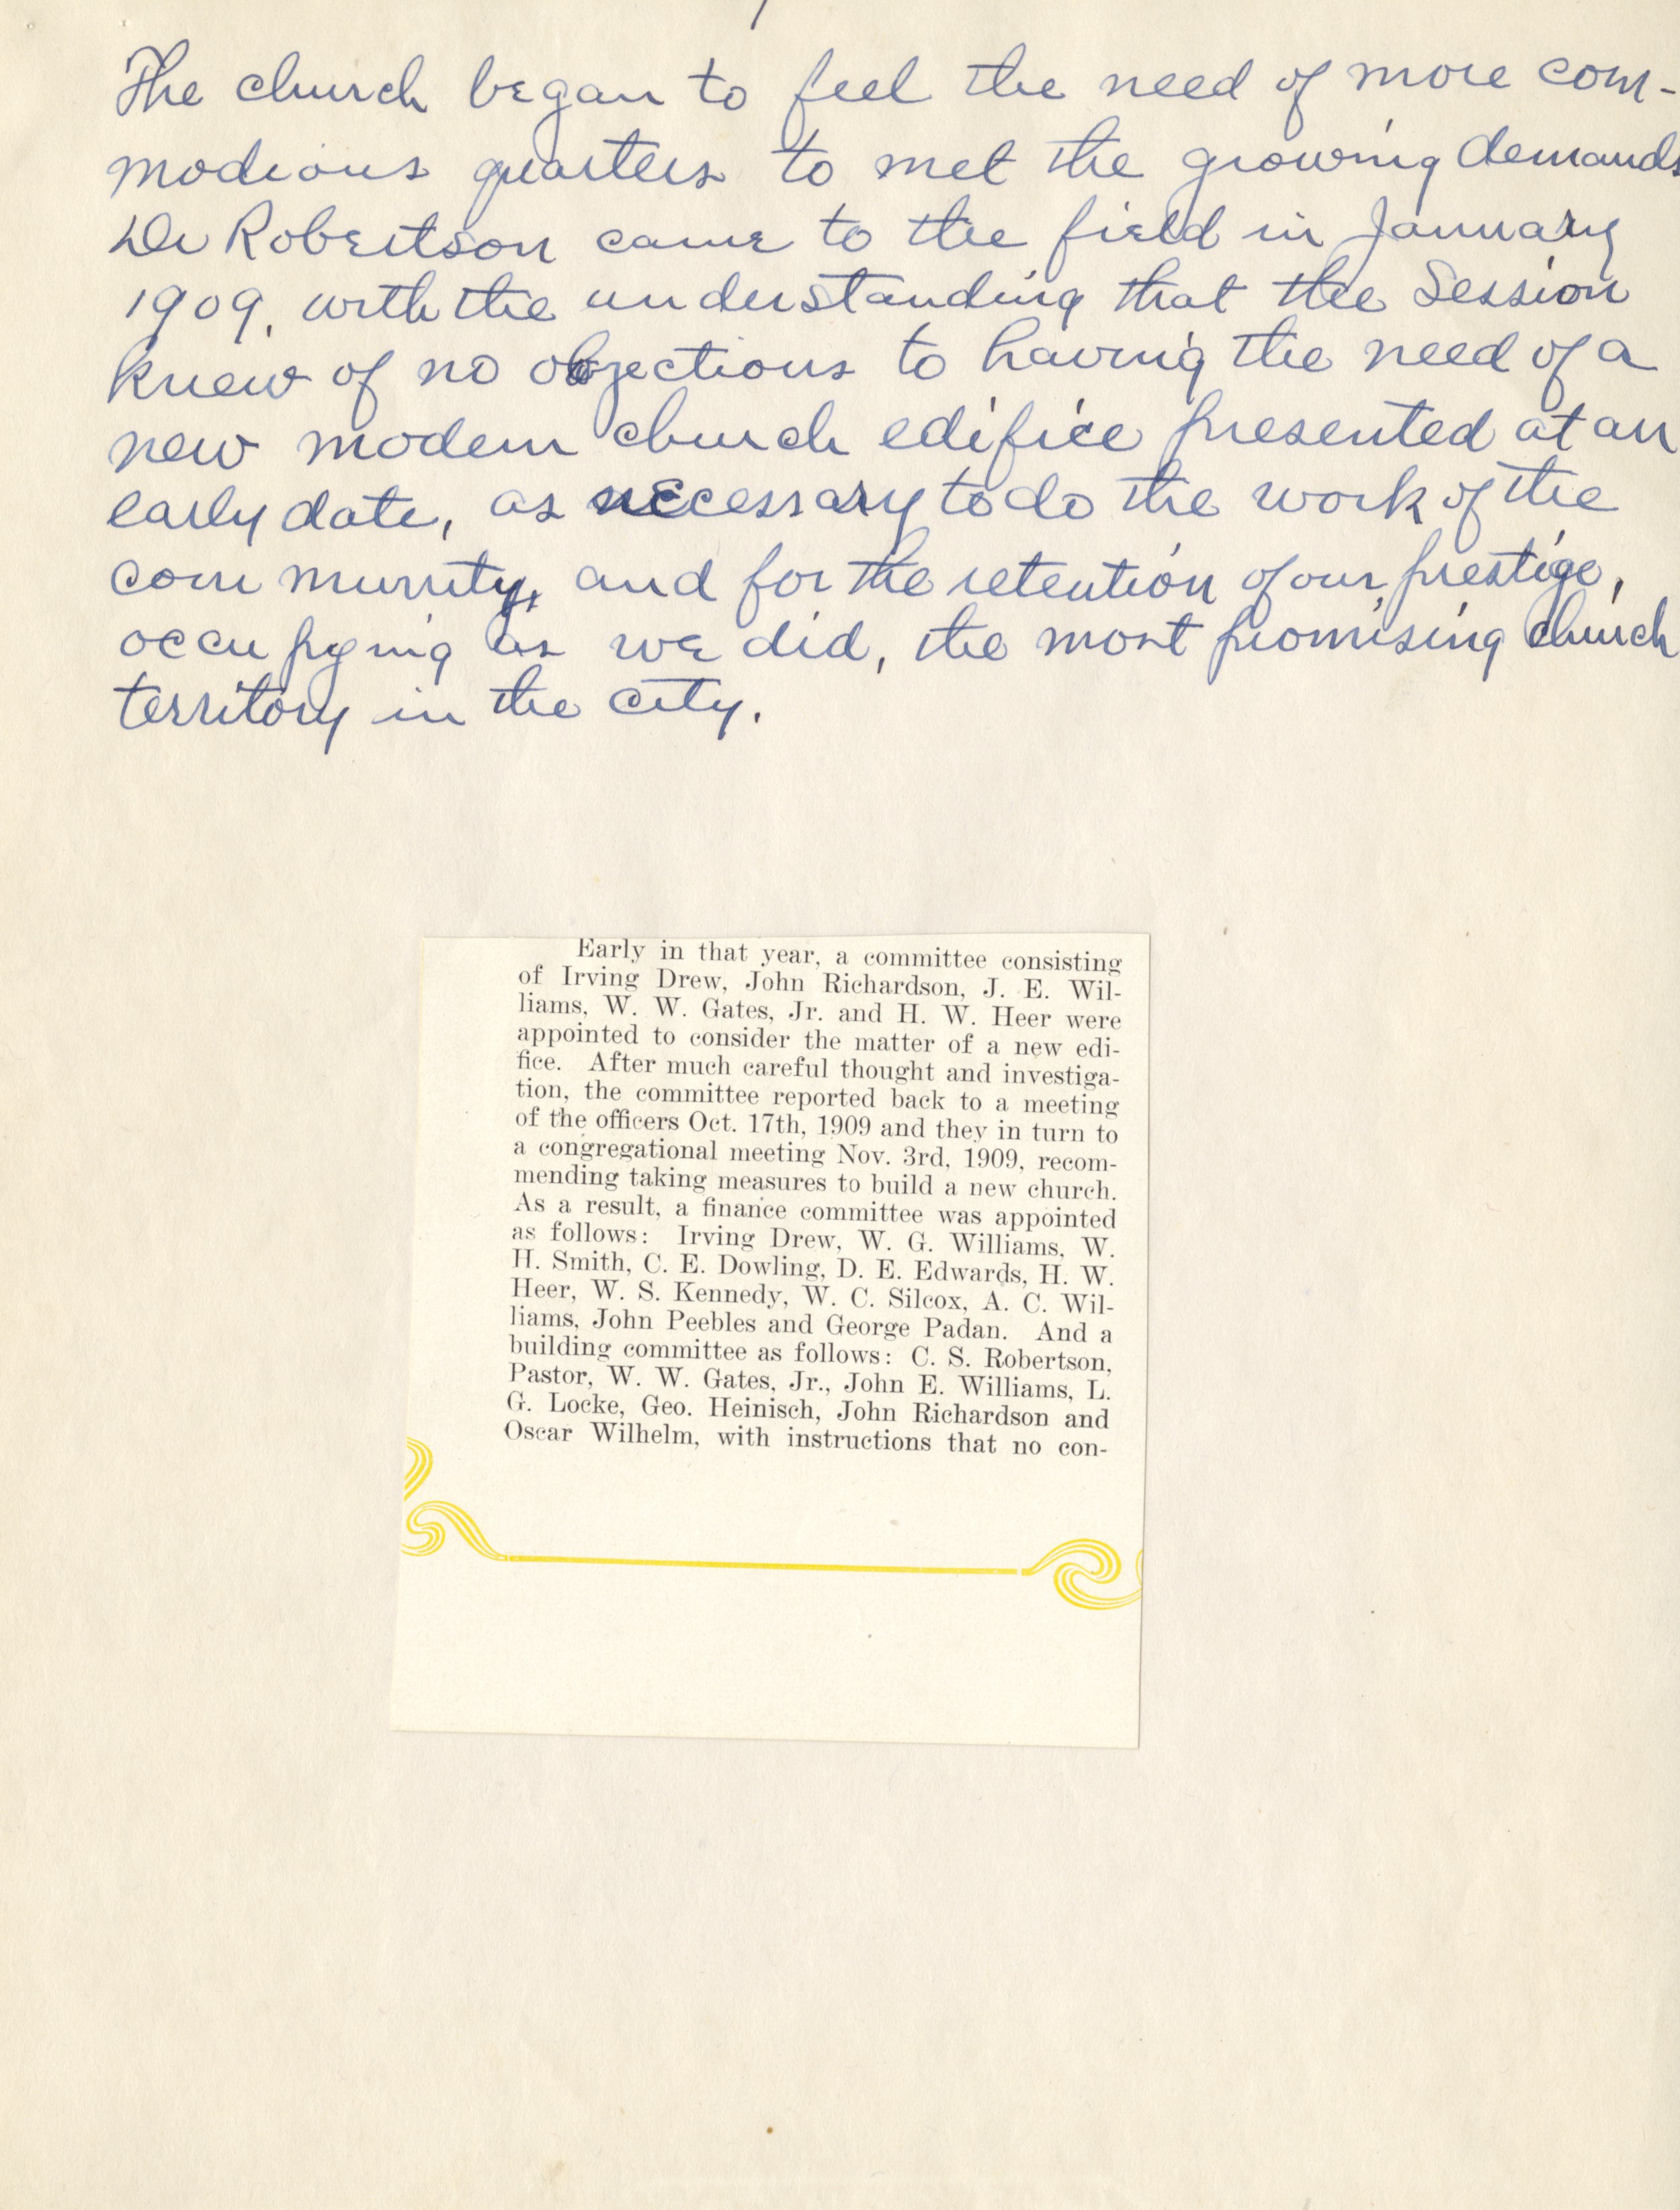 The church began to feel the need of more com-
modious quarters to met the growing demands
Dr Robertson came to the field in January
1909, with the understanding that the Session
knew of no objections to having the need of a
new modern church edifice presented at an
early date, as necessary to do the work of the
community, and for the retention of our prestige,
occupying as we did, the most promising church
territory in the city.
Early in that year, a committee consisting
of Irving Drew, John Richardson, J. E. Wil-
liams, W. W. Gates, Jr. and H. W. Heer were
appointed to consider the matter of a new edi-
fice. After much careful thought and investiga-
tion, the committee reported back to a meeting
of the officers Oct. 17th, 1909 and they in turn to
a congregational meeting Nov. 3rd, 1909, recom-
mending taking measures to build a new church.
As a result, a finance committee was appointed
as follows: Irving Drew, W. G. Williams, W.
H. Smith, C. E. Dowling, D. E. Edwards, H. W.
Heer, W. S. Kennedy, W. C. Silcox, A. C. Wil-
liams, John Peebles and George Padan. And a
building committee as follows: C. S. Robertson,
Pastor, W. W. Gates, Jr., John E. Williams, L.
G. Locke, Geo. Heinisch, John Richardson and
Oscar Wilhelm, with instructions that no con-